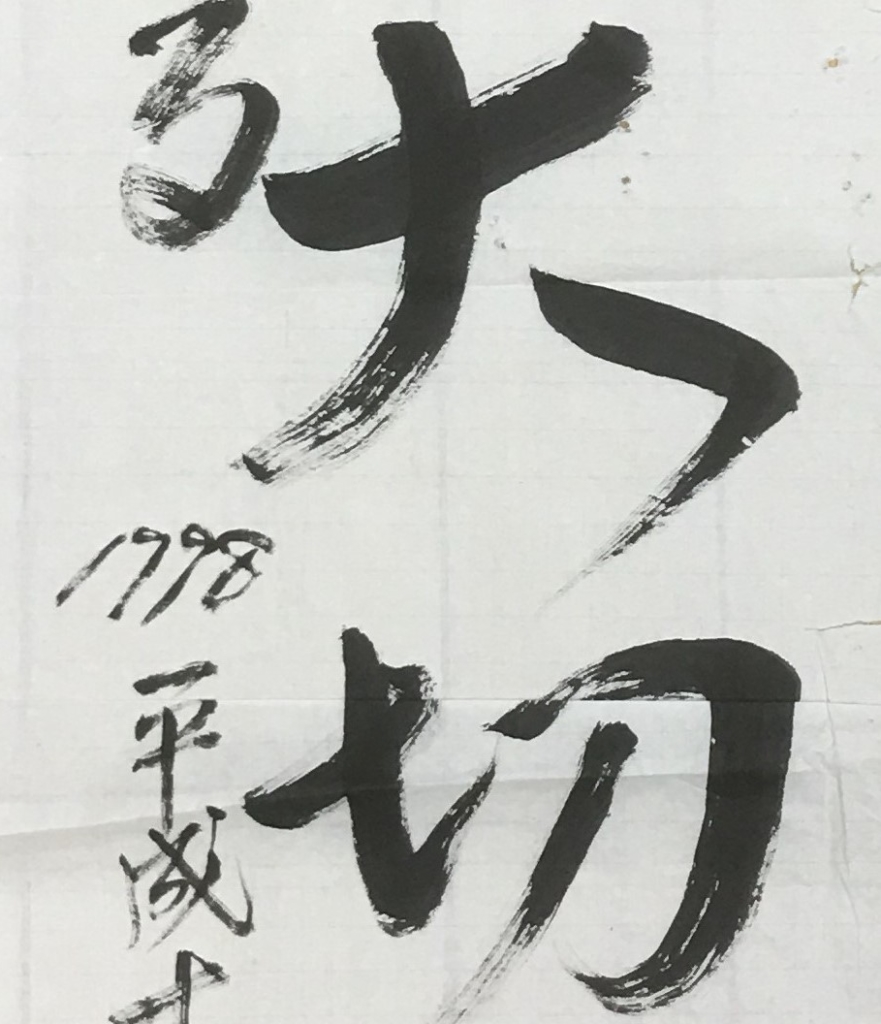 大切
る
1998
平成十